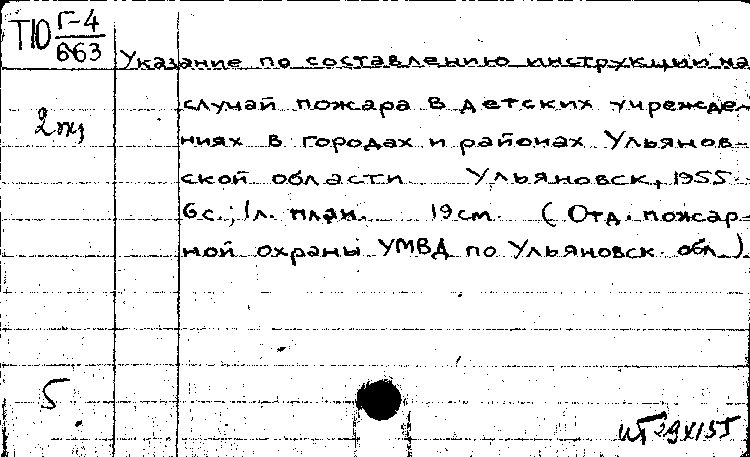 ТЮ Г-4
663
Указание по составлению инструкции на
случай пожара в детских учрежде-
2 экз
ниях в городах и районах Ульянов-
ской области Ульяновск, 1955.
6 с.; 1 л. план. 19 см. (Отд. пожар-
ной охраны УМВД по Ульяновск. обл.)
5